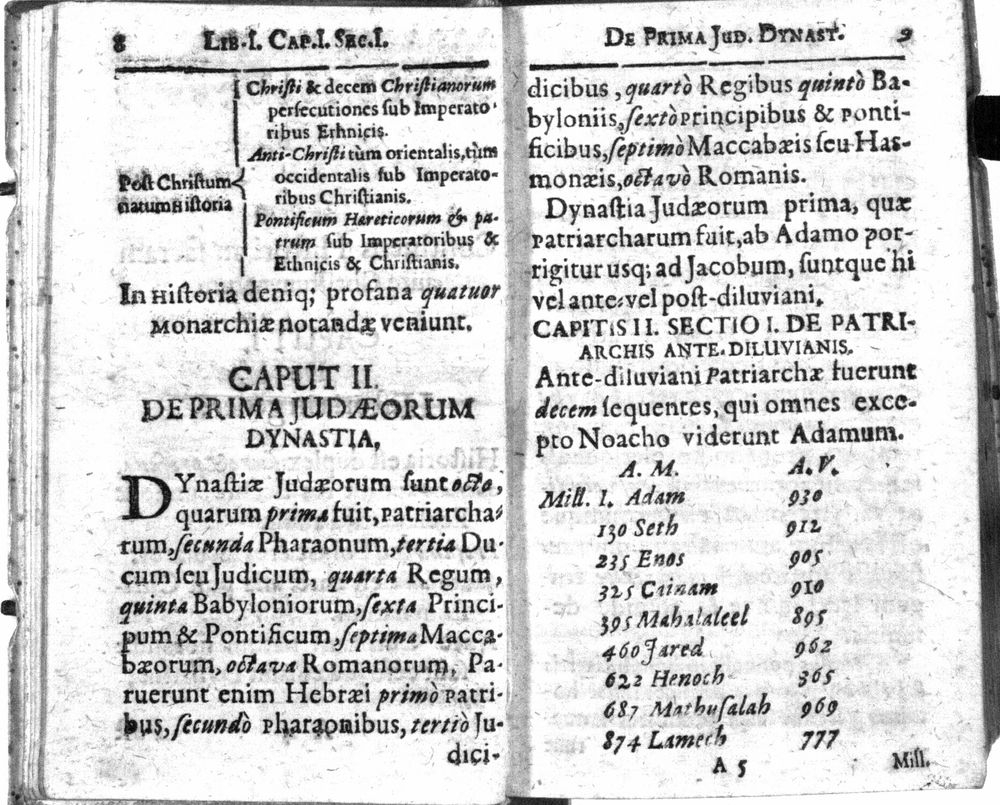 8 LIB. I. CAP. I. SEC. I.
Christi & decem Christianorum
persecutiones sub Imperato-
ribus Ethnicis.
Anti-Christi tùm orientalis, tùm
occidentalis sub Imperato-
ribus Christianis.
Post Christum
natum Historia
Pontificum Hæreticorum & pa-
trum sub Imperatoribus &
Ethnicis & Christianis.
In Historia deniq; profana quatuor
Monarchiæ notandæ veniunt.
CAPUT II.
DE PRIMA JUDÆORUM
DYNASTIA.
DYnastiæ Judæorum sunt octo,
quarum prima fuit, Patriarcha-
rum, secunda Pharaonum, tertia Du-
cum seu Judicum, quarta Regum,
quinta Babyloniorum, sexta Princi-
pum & Pontificum, septima Macca-
bæorum, octava Romanorum, Pa-
ruerunt enim Hebræi primò Patri-
bus, secundò Pharaonibus, tertiò Ju-
dici-
DE PRIMA JUD. DYNAST. 9
dicibus, quartò Regibus quintò Ba-
byloniis, sextò Principibus & Ponti-
ficibus, septimò Maccabæis seu Has-
monæis, octavò Romanis.
Dynastia Judæorum prima, quæ
Patriarcharum fuit, ab Adamo por-
rigitur usq; ad Jacobum, suntque hi
vel ante-vel post-diluviani.
CAPITIS II. SECTIO I. DE PATRI-
ARCHIS ANTE-DILUVIANIS.
Ante-diluviani Patriarchæ fuerunt
decem sequentes, qui omnes exce-
pto Noacho viderunt Adamum.
A. M. A. V.
Mill. 1. Adam 930
130 Seth 912
235 Enos 905
325 Cainam 910
395 Mahalaleel 895
460 Jared 962
622 Henoch 365
687 Mathusalah 969
874 Lamech 777
A 5 Mill.